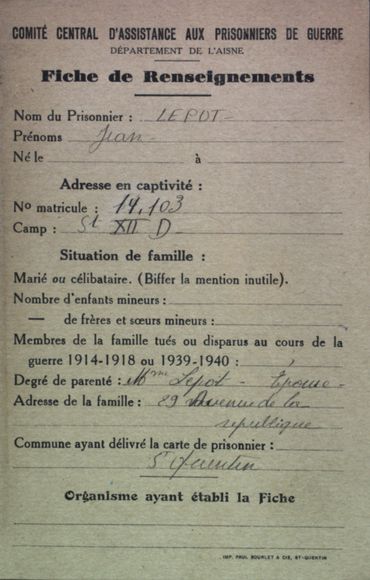 COMITÉ CENTRAL D'ASSISTANCE AUX PRISONNIERS DE GUERRE
DÉPARTEMENT DE L'AISNE
Fiche de Renseignements
Nom du Prisonnier : LEPOT
Prénoms Jean
Né le à
Adresse en captivité :
No matricule : 14.103
Camp : St XII D
Situation de famille :
Marié ou célibataire. (Biffer la mention inutile).
Nombre d'enfants mineurs :
— de frères et sœurs mineurs :
Membres de la famille tués ou disparus au cours de la
guerre 1914-1918 ou 1939-1940 :
Degré de parenté : Mme Lepot - Epouse -
Adresse de la famille : 89 Avenue de la
republique
Commune ayant délivré la carte de prisonnier :
St Quentin
Organisme ayant établi la Fiche
IMP. PAUL BOURLET & CIE, ST-QUENTIN